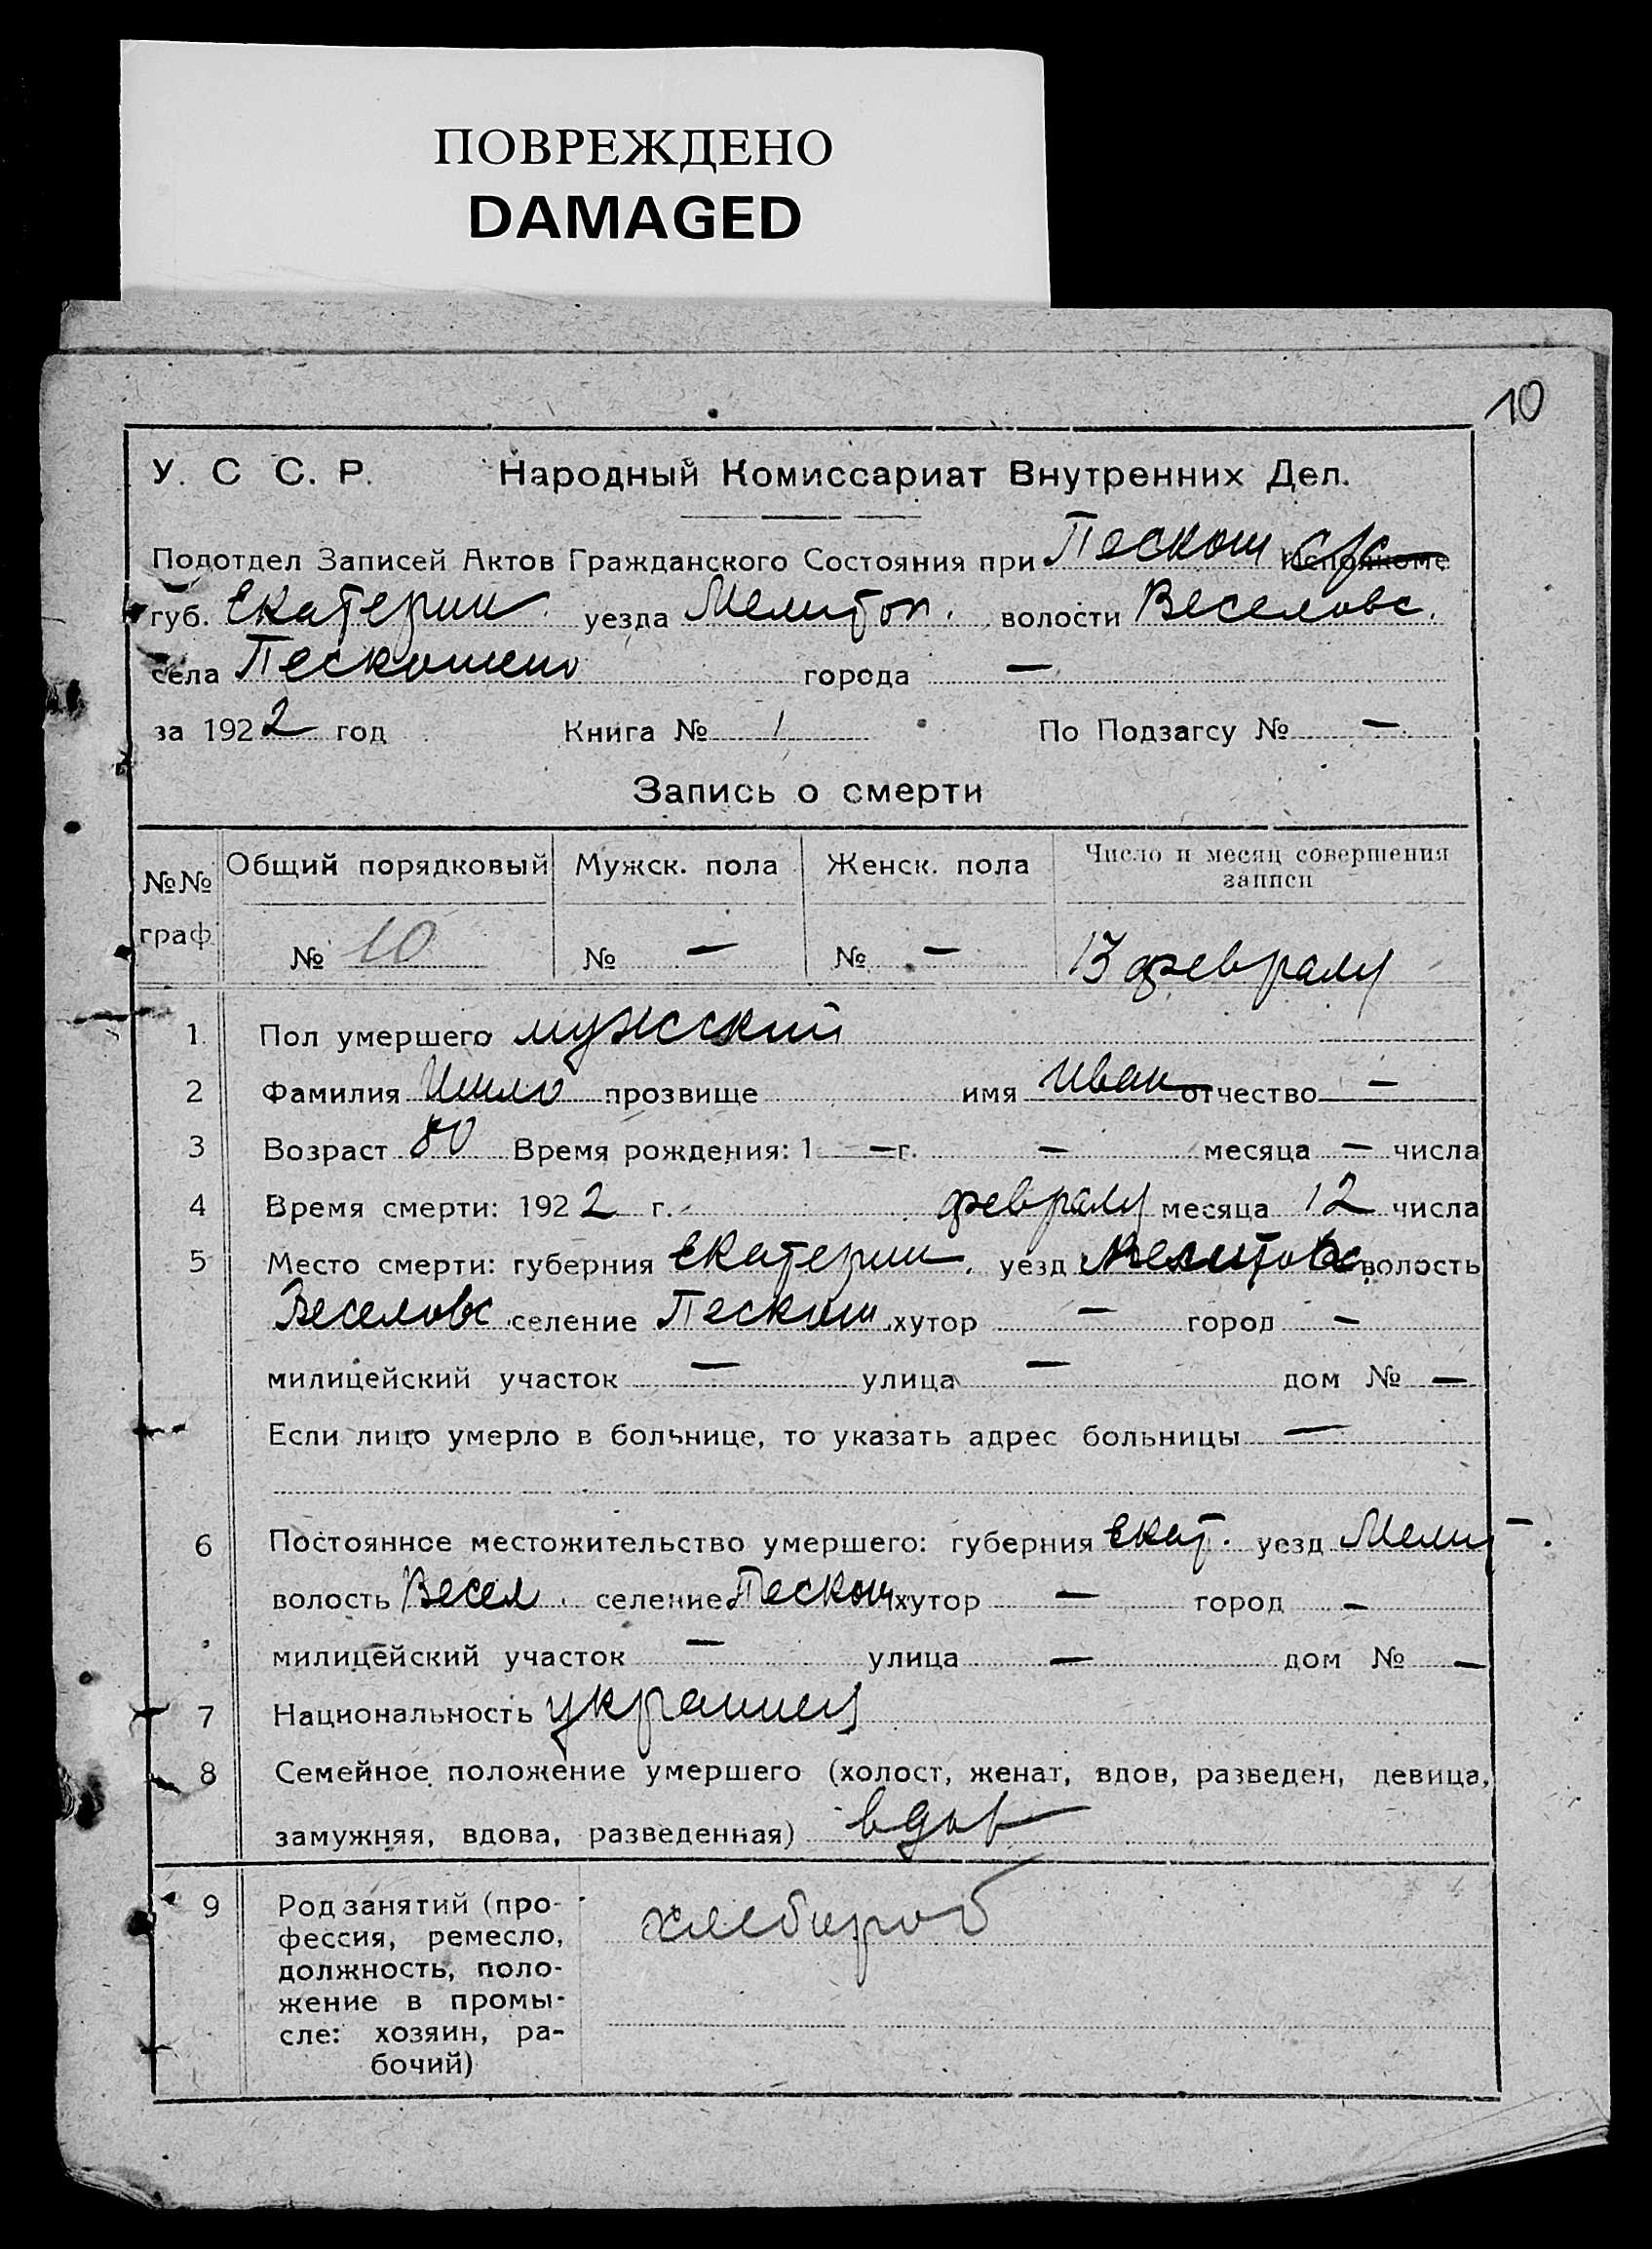 ПОВРЕЖДЕНО
DAMAGED
10
У. С С. Р. Народный Комиссариат Внутренних Дел.
Подотдел Записей Актов Гражданского Состояния при Пескош Исполкоме
губ. Екатерин. уезда Мелитоп. волости Веселовс.
села Пескошено города —
за 1922 год Книга № 1 По Подзагсу № —
Запись о смерти
№№ граф Общий порядковый Мужск. пола Женск. пола Число и месяц совершения записи
№ 10 № — № — 13 февраля
1 Пол умершего мужский
2 Фамилия прозвище имя Иван отчество —
3 Возраст 80 Время рождения: 1 — г. — месяца — числа
4 Время смерти: 1922 г. февраля месяца 12 числа
5 Место смерти: губерния Екатерин. уезд волость
Веселовс селение Пескош хутор — город —
милицейский участок — улица — дом № —
Если лицо умерло в больнице, то указать адрес больницы —
6 Постоянное местожительство умершего: губерния Екат. уезд Мелит.
волость Весел. селение Пескош хутор — город —
милицейский участок — улица — дом № —
7 Национальность украинец
8 Семейное положение умершего (холост, женат, вдов, разведен, девица,
замужняя, вдова, разведенная) вдов
9 Род занятий (про- хлебироб
фессия, ремесло,
должность, поло-
жение в промы-
сле: хозяин, ра-
бочий)